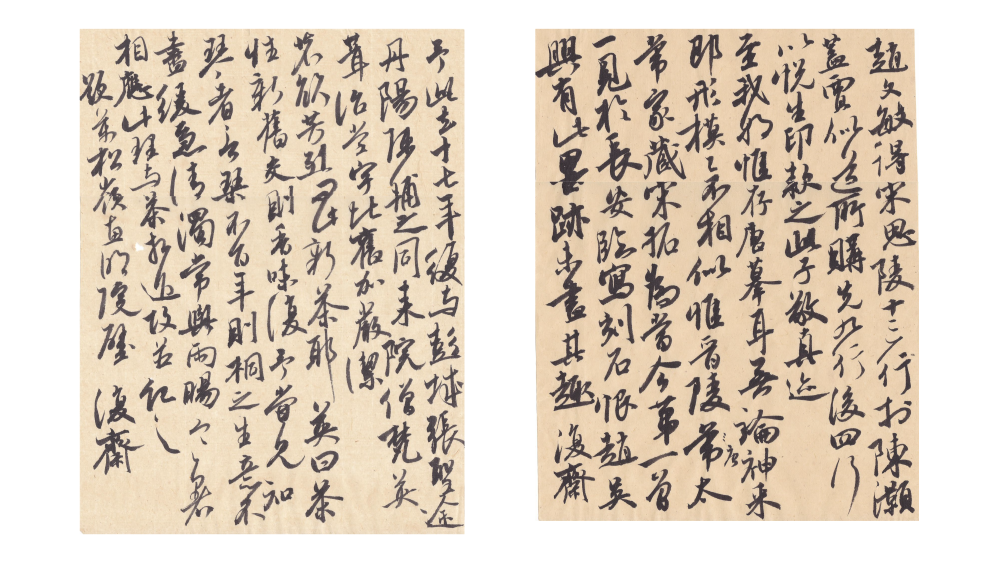 趙文敏得宋思陵十三行於陳灝
蓋賈似道所購先九行後四行
以悅生印款之此子敬真迹
至我朝惟存唐摹耳無論神采
即形模已不相似惟晉陵常太
唐
常家藏宋拓為當今第一曾
一見於長安臨寫刻石恨趙吳
興有此墨跡未盡其趣 復齋
予此去十七年復與彭城張聖途
丹陽陳輔之同來院僧梵英
葺治堂宇比舊加嚴潔
茗飲芳烈問新茶耶 英曰茶
性新舊交則香味復予嘗見知
琴者言琴不百年則桐之生意不
盡緩急清濁常與雨暘寒暑
相應此理與茶相近故並記之
題萬松嶺惠明院壁 復齋